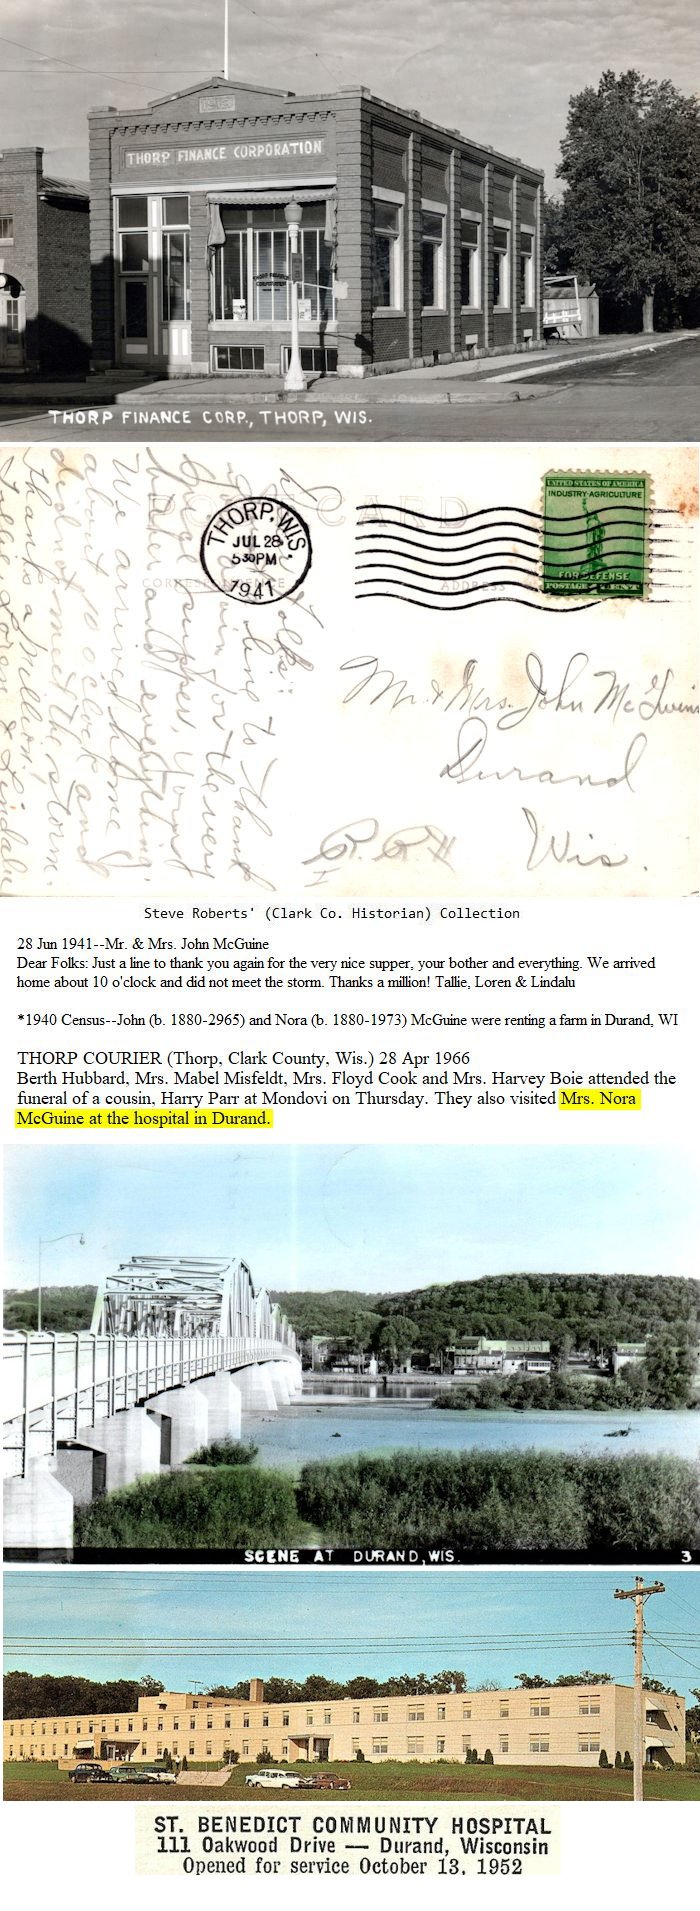 THORP FINANCE CORPORATION
THORP FINANCE
CORPORATION
THORP FINANCE CORP., THORP, WIS.
POST CARD
THORP, WIS.
JUL 28
5 30 PM
1941
UNITED STATES OF AMERICA
INDUSTRY-AGRICULTURE
FOR DEFENSE
POSTAGE 1 CENT
CORRESPONDENCE
ADDRESS
Folks:
line to thank
for the very
nice supper, your
bother and everything.
We arrived home
about 10 o'clock and
did not meet the storm.
Thanks a million!
Tallie, Loren & Lindalu
Mr. & Mrs. John McGuine
Durand
Wis.
Steve Roberts' (Clark Co. Historian) Collection
28 Jun 1941--Mr. & Mrs. John McGuine
Dear Folks: Just a line to thank you again for the very nice supper, your bother and everything. We arrived
home about 10 o'clock and did not meet the storm. Thanks a million! Tallie, Loren & Lindalu
*1940 Census--John (b. 1880-2965) and Nora (b. 1880-1973) McGuine were renting a farm in Durand, WI
THORP COURIER (Thorp, Clark County, Wis.) 28 Apr 1966
Berth Hubbard, Mrs. Mabel Misfeldt, Mrs. Floyd Cook and Mrs. Harvey Boie attended the
funeral of a cousin, Harry Parr at Mondovi on Thursday. They also visited Mrs. Nora
McGuine at the hospital in Durand.
SCENE AT DURAND, WIS. 3
ST. BENEDICT COMMUNITY HOSPITAL
111 Oakwood Drive — Durand, Wisconsin
Opened for service October 13, 1952